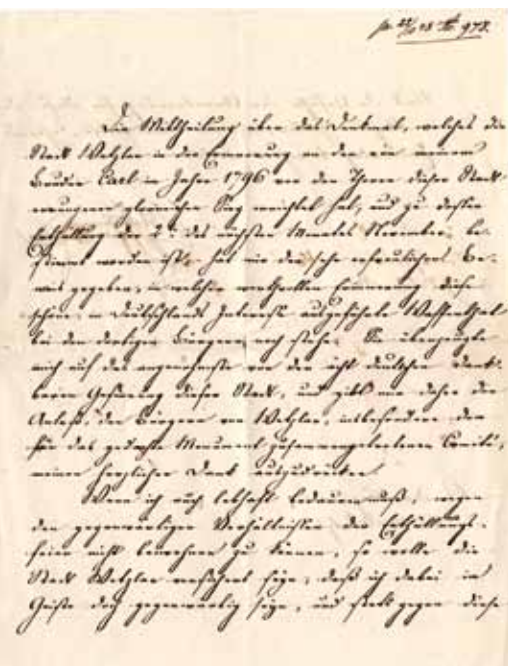 Die Mittheilung über das Denkmal, welches die
Stadt Wetzlar in der Erinnerung an den von meinem
Bruder Carl im Jahre 1796 vor den Thoren dieser Stadt
errungenen glorreichen Sieg errichtet hat, und zu dessen
Enthüllung der 2te des nächsten Monates November be-
stimmt worden ist, hat mir den sehr erfreulichen Be-
weis gegeben, in welcher werthvollen Erinnerung diese
schöne, in Deutschlands Interesse ausgeführte Waffenthat
bei den dortigen Bürgern noch stehe. Sie überzeugte
mich auf das angenehmste von der ächt deutschen dank-
baren Gesinnung dieser Stadt, und gibt mir daher den
Anlaß, den Bürgern von Wetzlar, insbesondere dem
für das gedachte Monument zusammengetretenen Comité,
meinen herzlichen Dank auszudrücken.
Wenn ich auch lebhaft bedauern muß, wegen
den gegenwärtigen Verhältnissen der Enthüllungs-
feier nicht beiwohnen zu können, so wolle die
Stadt Wetzlar versichert sein, daß ich dabei im
Geiste doch gegenwärtig sein, und stets gegen diese